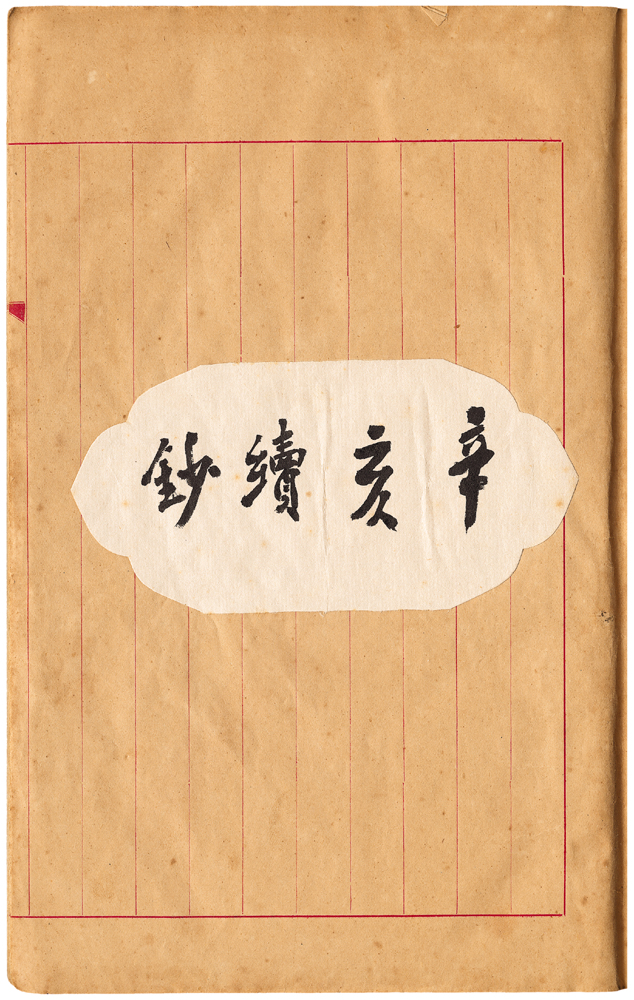 辛亥續鈔